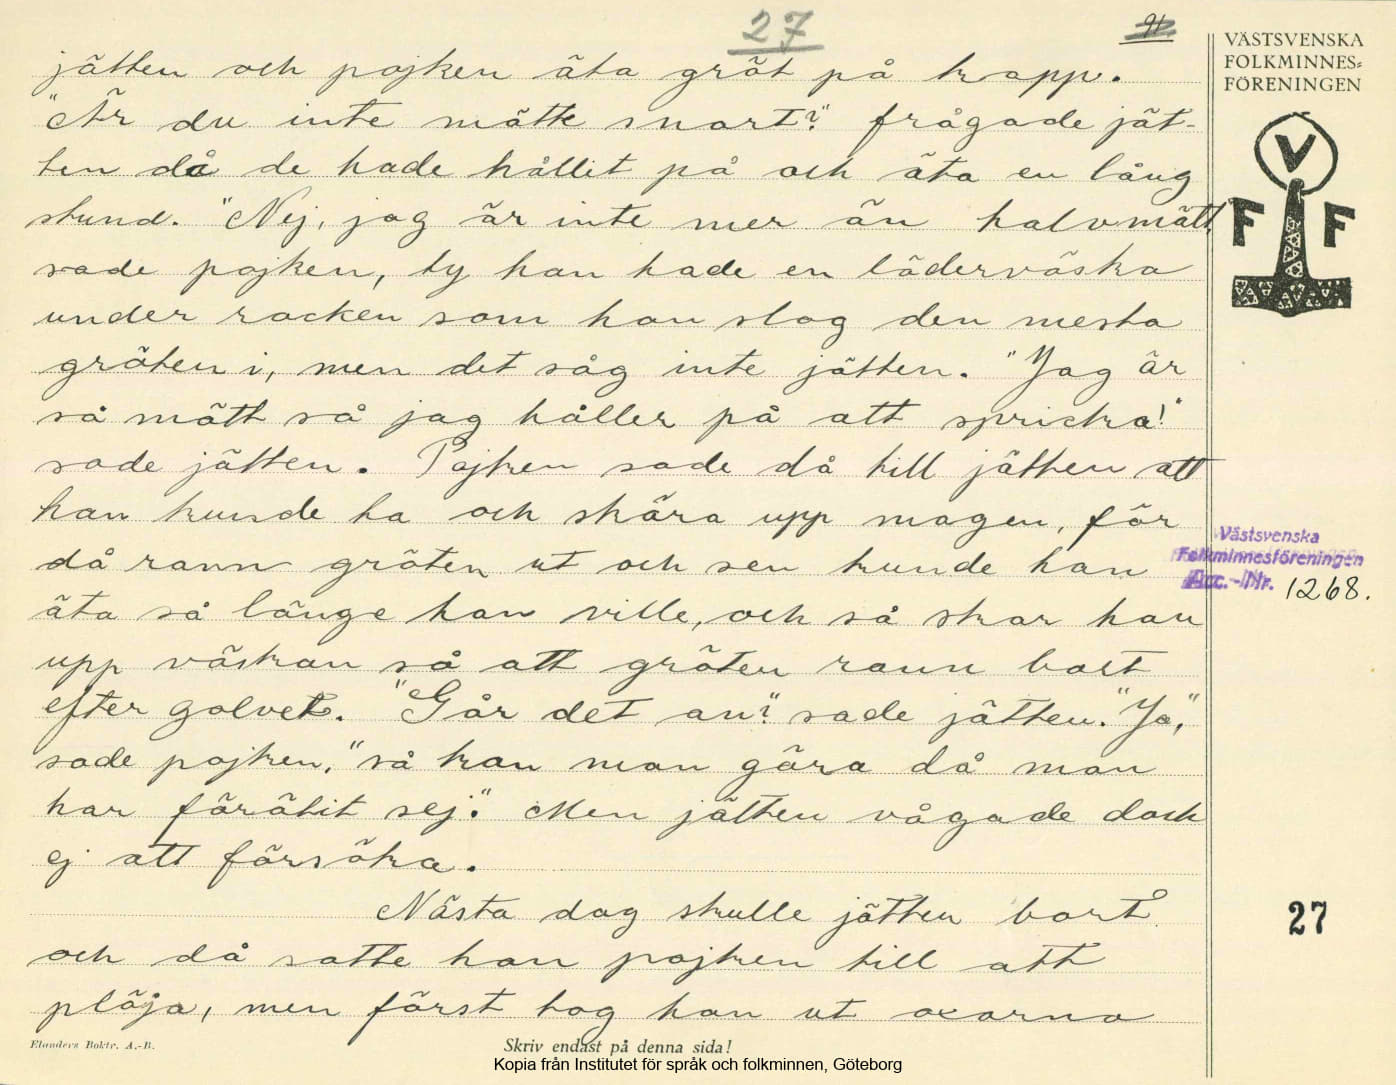 27
91
VÄSTSVENSKA
FOLKMINNES=
FÖRENINGEN
V
F F
jätten och pojken äta gröt på kapp.
"Är du inte mätt snart?" frågade jät-
ten då de hade hållit på och äta en lång
stund. "Nej, jag är inte mer än halvmätt,"
sade pojken, ty han hade en läderväska
under rocken som han slog den mesta
gröten i, men det såg inte jätten. "Jag är
så mätt så jag håller på att spricka!"
sade jätten. Pojken sade då till jätten att
han kunde ta och skära upp magen, för
då rann gröten ut och sen kunde han
äta så länge han ville, och så skar han
upp väskan så att gröten rann bort
efter golvet. "Går det an?" sade jätten. "Ja,"
sade pojken, "så kan man göra då man
har förätit sej." Men jätten vågade dock
ej att försöka.
Nästa dag skulle jätten bort
och då satte han pojken till att
plöja, men först tog han ut oxarna
Västsvenska
Folkminnesföreningen
Acc.-Nr. 1268.
27
Elanders Boktr. A.-B.
Skriv endast på denna sida!
Kopia från Institutet för språk och folkminnen, Göteborg